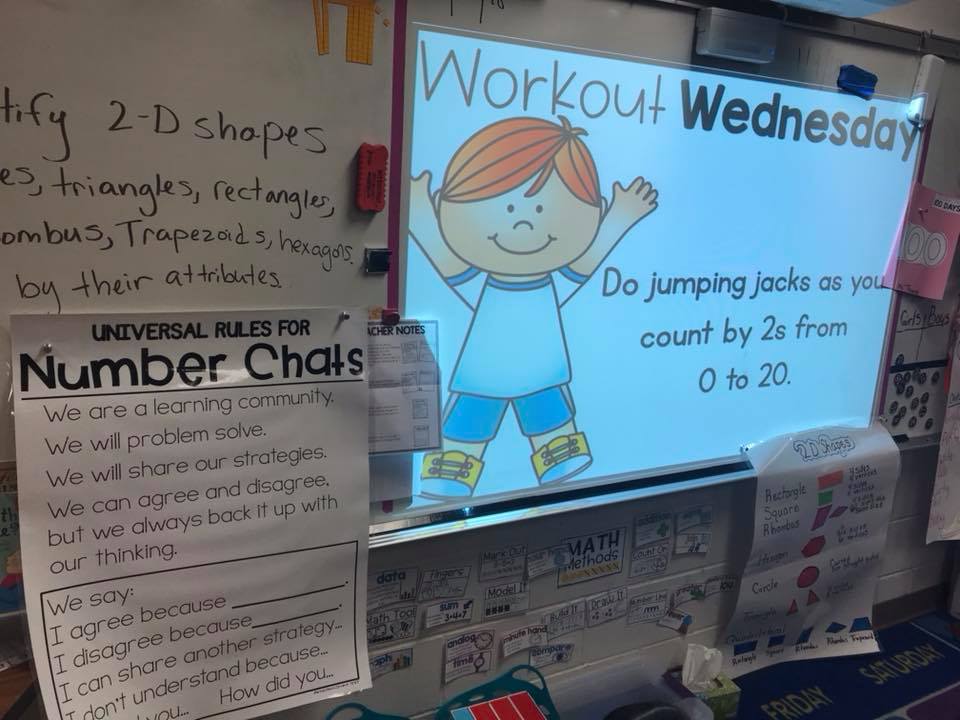 Workout Wednesday
Do jumping jacks as you
count by 2s from
0 to 20.
tify 2-D shapes
es, triangles, rectangles,
ombus, Trapezoids, hexagons
by their attributes.
UNIVERSAL RULES FOR
Number Chats
We are a learning community.
We will problem solve.
We will share our strategies.
We can agree and disagree,
but we always back it up with
our thinking.
We say:
I agree because
I disagree because
I can share another strategy...
I don't understand because...
you... How did you...
ACHER NOTES
100 DAYS
100
Girls Boys
2D Shapes
Rectangle
Square
Rhombus
Hexagon
Circle
Triangle
Quadrilateral
Rectangle Square Rhombus Trapezoid
MATH
Methods
data
fingers
Mark Out
Count On
Math Tool
sum
3+4=7
Model It
Build It
Draw It
Number Line
analog
time
minute hand
compare
addition
FRIDAY
SATURDAY